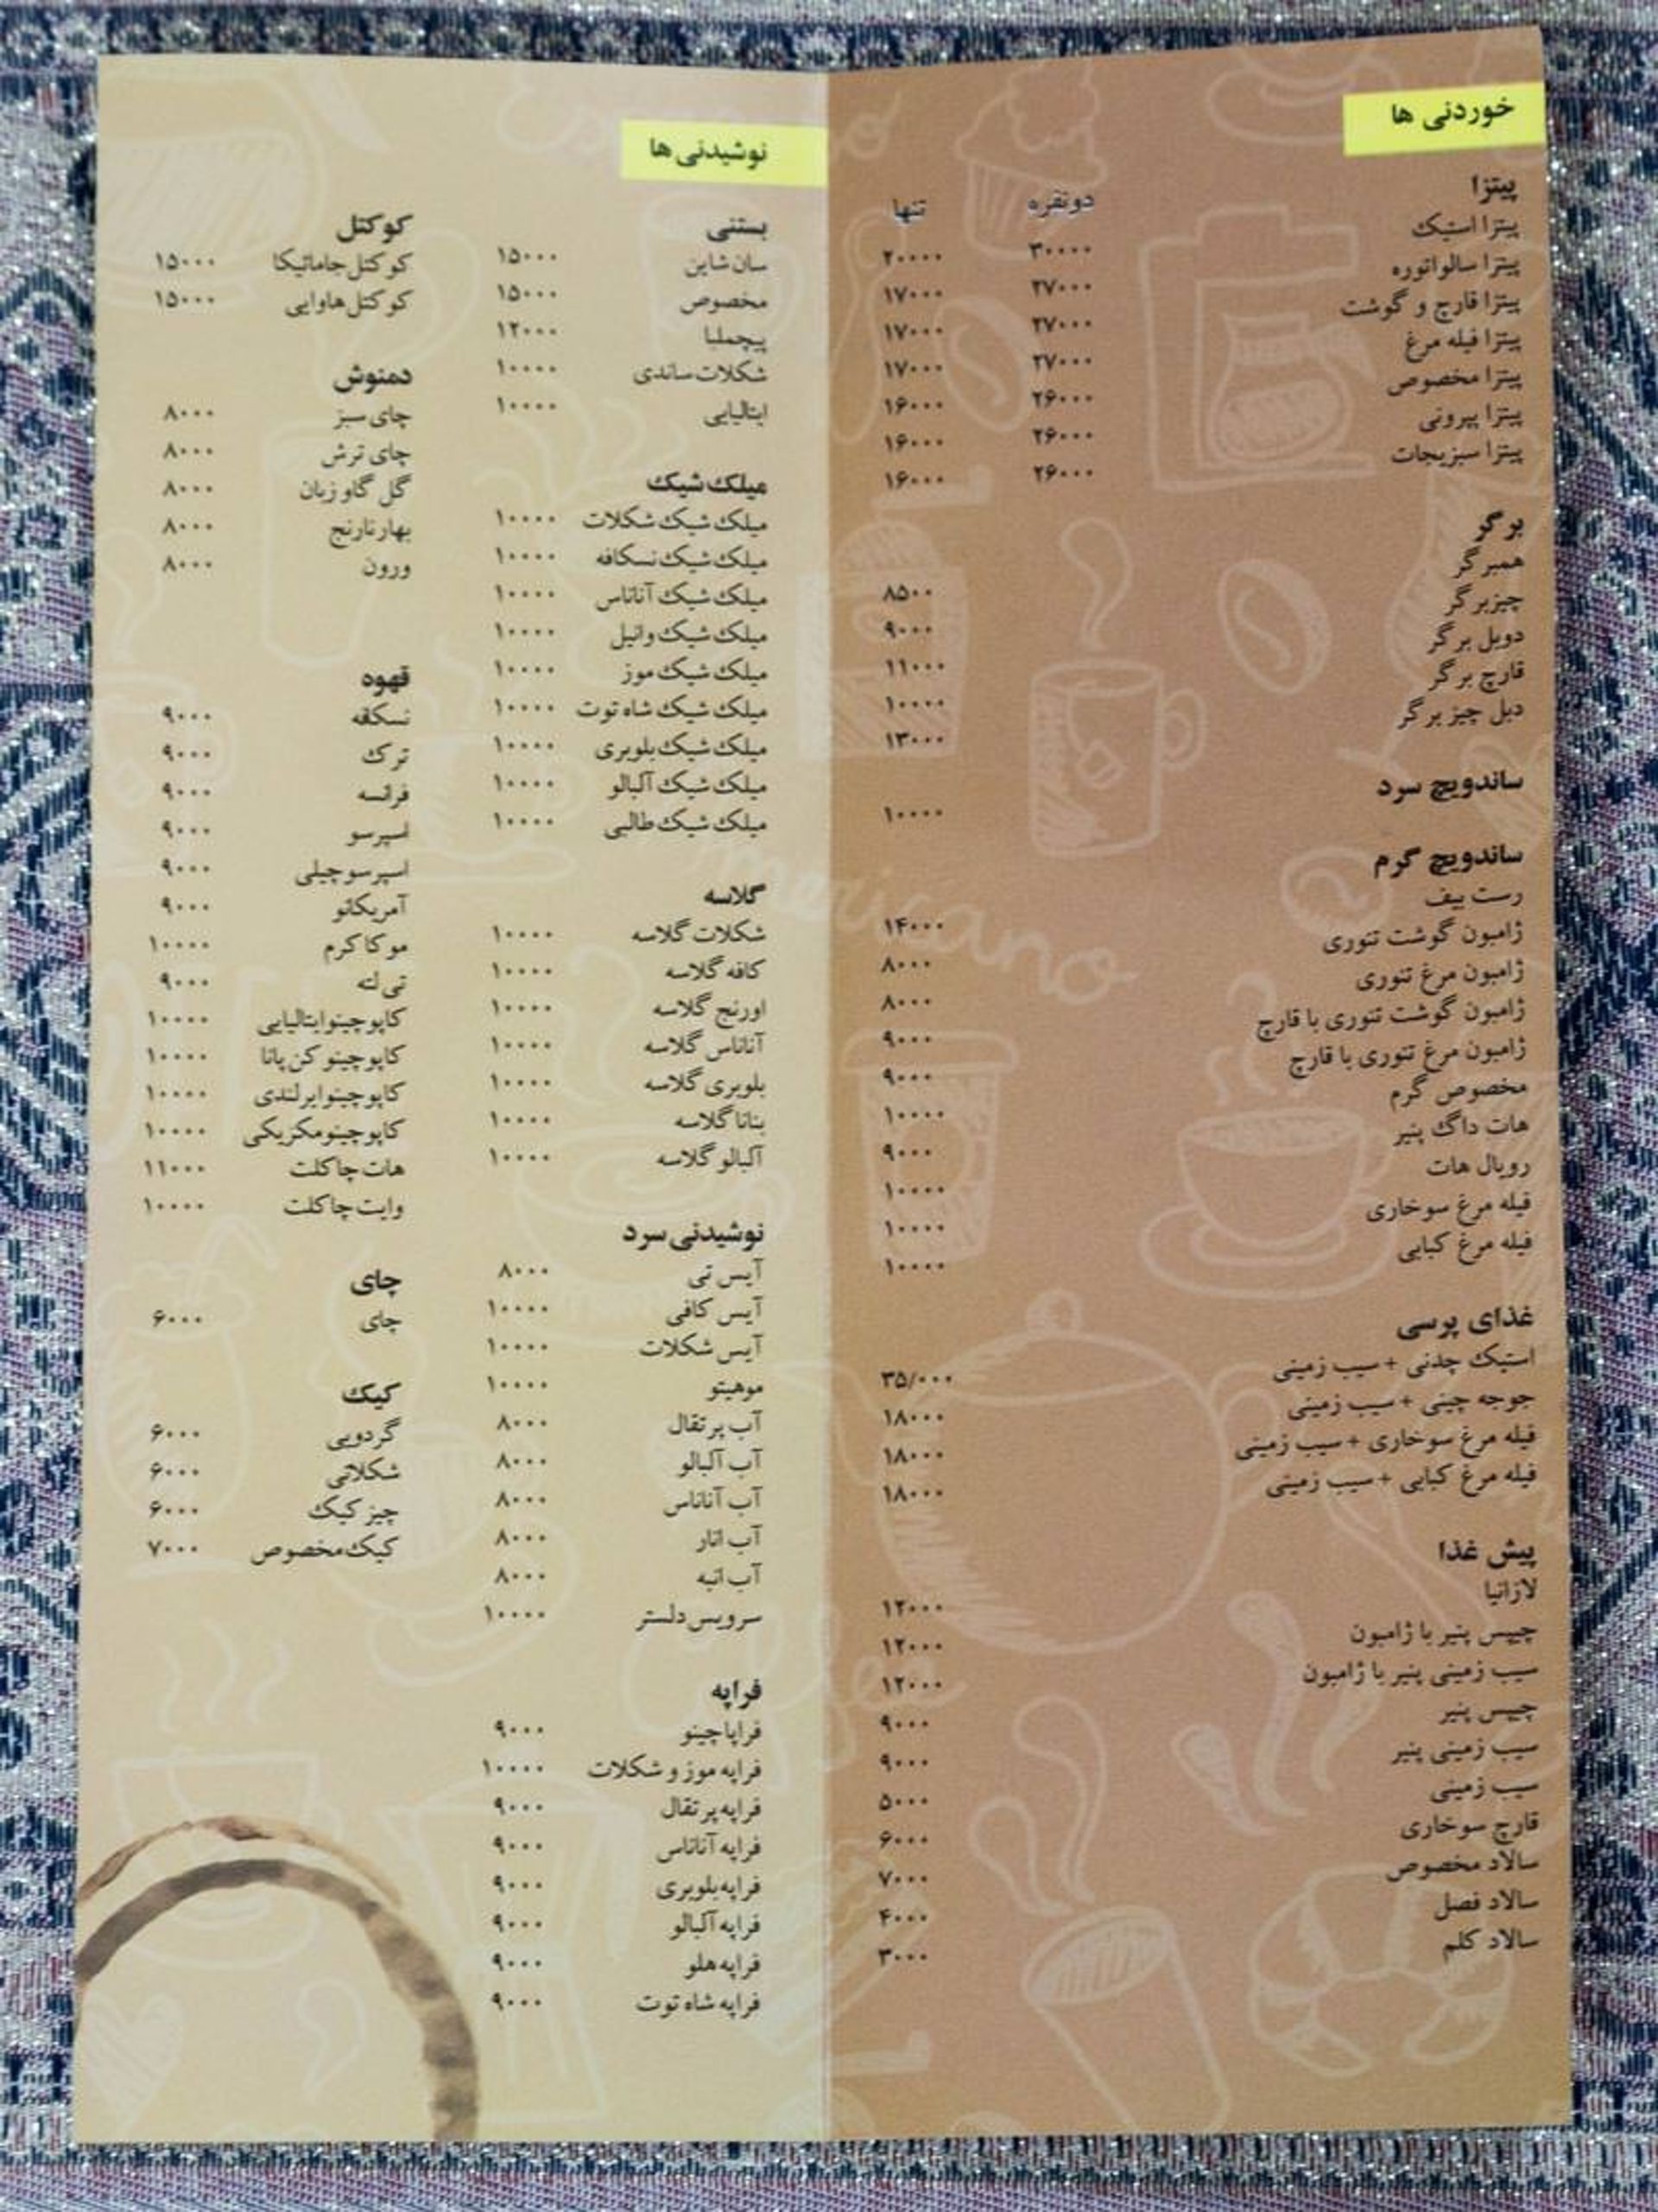 خوردنی ها
پیتزا
دونفره تنها
پیتزا استیک ۳۰۰۰۰ ۲۰۰۰۰
پیتزا سالواتوره ۲۷۰۰۰ ۱۷۰۰۰
پیتزا قارچ و گوشت ۲۷۰۰۰ ۱۷۰۰۰
پیتزا فیله مرغ ۲۷۰۰۰ ۱۷۰۰۰
پیتزا مخصوص ۲۶۰۰۰ ۱۶۰۰۰
پیتزا پپرونی ۲۶۰۰۰ ۱۶۰۰۰
پیتزا سبزیجات ۲۶۰۰۰ ۱۶۰۰۰
برگر
همبرگر ۸۵۰۰
چیزبرگر ۹۰۰۰
دوبل برگر ۱۱۰۰۰
قارچ برگر ۱۰۰۰۰
دبل چیز برگر ۱۳۰۰۰
ساندویچ سرد ۱۰۰۰۰
ساندویچ گرم
رست بیف ۱۴۰۰۰
ژامبون گوشت تنوری ۸۰۰۰
ژامبون مرغ تنوری ۸۰۰۰
ژامبون گوشت تنوری با قارچ ۹۰۰۰
ژامبون مرغ تنوری با قارچ ۹۰۰۰
مخصوص گرم ۱۰۰۰۰
هات داگ پنیر ۹۰۰۰
رویال هات ۱۰۰۰۰
فیله مرغ سوخاری ۱۰۰۰۰
فیله مرغ کبابی ۱۰۰۰۰
غذای پرسی
استیک چدنی + سیب زمینی ۳۵/۰۰۰
جوجه چینی + سیب زمینی ۱۸۰۰۰
فیله مرغ سوخاری + سیب زمینی ۱۸۰۰۰
فیله مرغ کبابی + سیب زمینی ۱۸۰۰۰
پیش غذا
لازانیا ۱۲۰۰۰
چیپس پنیر با ژامبون ۱۲۰۰۰
سیب زمینی پنیر با ژامبون ۱۲۰۰۰
چیپس پنیر ۹۰۰۰
سیب زمینی پنیر ۹۰۰۰
سیب زمینی ۵۰۰۰
قارچ سوخاری ۶۰۰۰
سالاد مخصوص ۷۰۰۰
سالاد فصل ۴۰۰۰
سالاد کلم ۳۰۰۰
نوشیدنی ها
بستنی
سان شاین ۱۵۰۰۰
مخصوص ۱۵۰۰۰
پیچملبا ۱۲۰۰۰
شکلات ساندی ۱۰۰۰۰
ایتالیایی ۱۰۰۰۰
میلک شیک
میلک شیک شکلات ۱۰۰۰۰
میلک شیک نسکافه ۱۰۰۰۰
میلک شیک آناناس ۱۰۰۰۰
میلک شیک وانیل ۱۰۰۰۰
میلک شیک موز ۱۰۰۰۰
میلک شیک شاه توت ۱۰۰۰۰
میلک شیک بلوبری ۱۰۰۰۰
میلک شیک آلبالو ۱۰۰۰۰
میلک شیک طالبی ۱۰۰۰۰
گلاسه
شکلات گلاسه ۱۰۰۰۰
کافه گلاسه ۱۰۰۰۰
اورنج گلاسه ۱۰۰۰۰
آناناس گلاسه ۱۰۰۰۰
بلوبری گلاسه ۱۰۰۰۰
بنانا گلاسه ۱۰۰۰۰
آلبالو گلاسه ۱۰۰۰۰
نوشیدنی سرد
آیس تی ۸۰۰۰
آیس کافی ۱۰۰۰۰
آیس شکلات ۱۰۰۰۰
موهیتو ۱۰۰۰۰
آب پرتقال ۸۰۰۰
آب آلبالو ۸۰۰۰
آب آناناس ۸۰۰۰
آب انار ۸۰۰۰
آب انبه ۸۰۰۰
سرویس دلستر ۱۰۰۰۰
فراپه
فراپاچینو ۹۰۰۰
فراپه موز و شکلات ۱۰۰۰۰
فراپه پرتقال ۹۰۰۰
فراپه آناناس ۹۰۰۰
فراپه بلوبری ۹۰۰۰
فراپه آلبالو ۹۰۰۰
فراپه هلو ۹۰۰۰
فراپه شاه توت ۹۰۰۰
کوکتل
کوکتل جامائیکا ۱۵۰۰۰
کوکتل هاوایی ۱۵۰۰۰
دمنوش
چای سبز ۸۰۰۰
چای ترش ۸۰۰۰
گل گاو زبان ۸۰۰۰
بهارنارنج ۸۰۰۰
ورون ۸۰۰۰
قهوه
نسکافه ۹۰۰۰
ترک ۹۰۰۰
فرانسه ۹۰۰۰
اسپرسو ۹۰۰۰
اسپرسو چیلی ۹۰۰۰
آمریکانو ۹۰۰۰
موکا کرم ۱۰۰۰۰
تی لته ۹۰۰۰
کاپوچینو ایتالیایی ۱۰۰۰۰
کاپوچینو کن پانا ۱۰۰۰۰
کاپوچینو ایرلندی ۱۰۰۰۰
کاپوچینو مکزیکی ۱۰۰۰۰
هات چاکلت ۱۱۰۰۰
وایت چاکلت ۱۰۰۰۰
چای
چای ۶۰۰۰
کیک
گردویی ۶۰۰۰
شکلاتی ۶۰۰۰
چیز کیک ۶۰۰۰
کیک مخصوص ۷۰۰۰